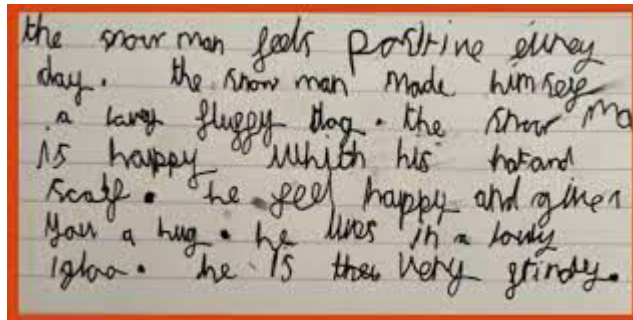 the snow man feels positive eurey
day. the snow man made himself
a lavey fluffy dog. the snow ma
is happy whith his hat and
scarf. he feel happy and gives
you a hug. he lives in a lovely
igloo. he is the very